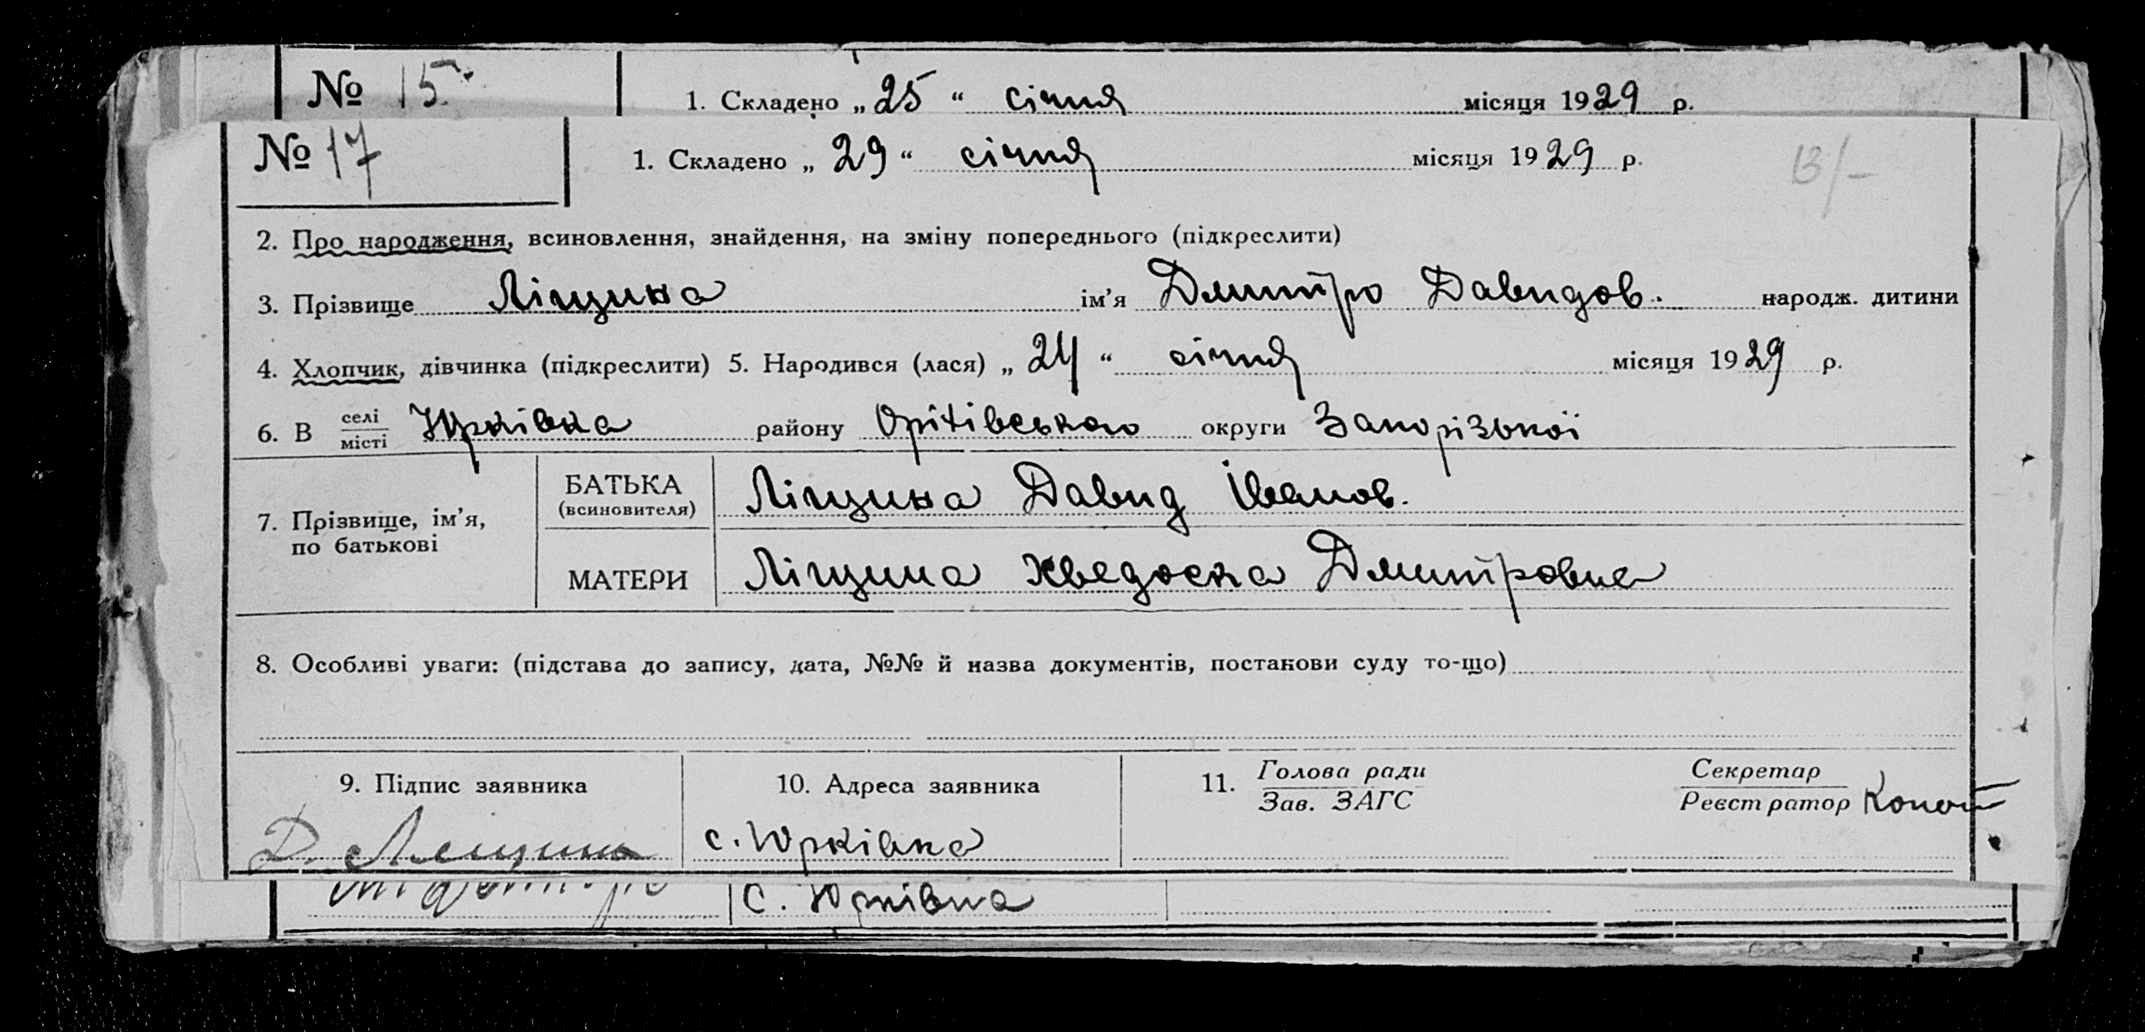 № 15. 1. Складено „25“ січня місяця 1929 р.
№ 17 1. Складено „29“ січня місяця 1929 р.
2. Про народження, всиновлення, знайдення, на зміну попереднього (підкреслити)
3. Прізвище Ліщина ім’я Дмитро Давидов. народж. дитини
4. Хлопчик, дівчинка (підкреслити) 5. Народився (лася) „24“ січня місяця 1929 р.
6. В селі/місті Юрківка району Оріхівського округи Запорізької
7. Прізвище, ім’я, по батькові
БАТЬКА (всиновителя) Ліщина Давид Іванов.
МАТЕРИ Ліщина Хведоска Дмитровна
8. Особливі уваги: (підстава до запису, дата, №№ й назва документів, постанови суду то-що)
9. Підпис заявника 10. Адреса заявника 11. Голова ради Секретар
Зав. ЗАГС Реєстратор
Д. Лещина с. Юрківка
с. Юрківка